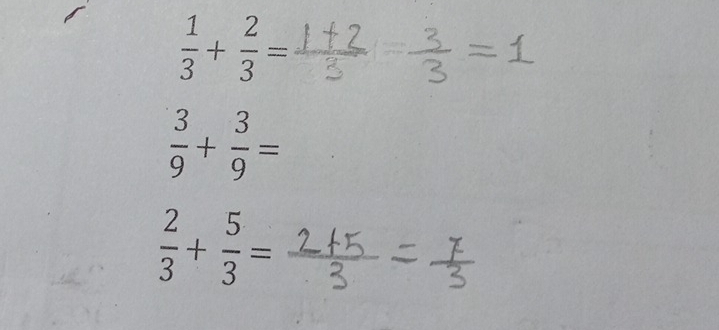 1/3 + 2/3 = 1+2/3 = 3/3 = 1
3/9 + 3/9 =
2/3 + 5/3 = 2+5/3 = 7/3